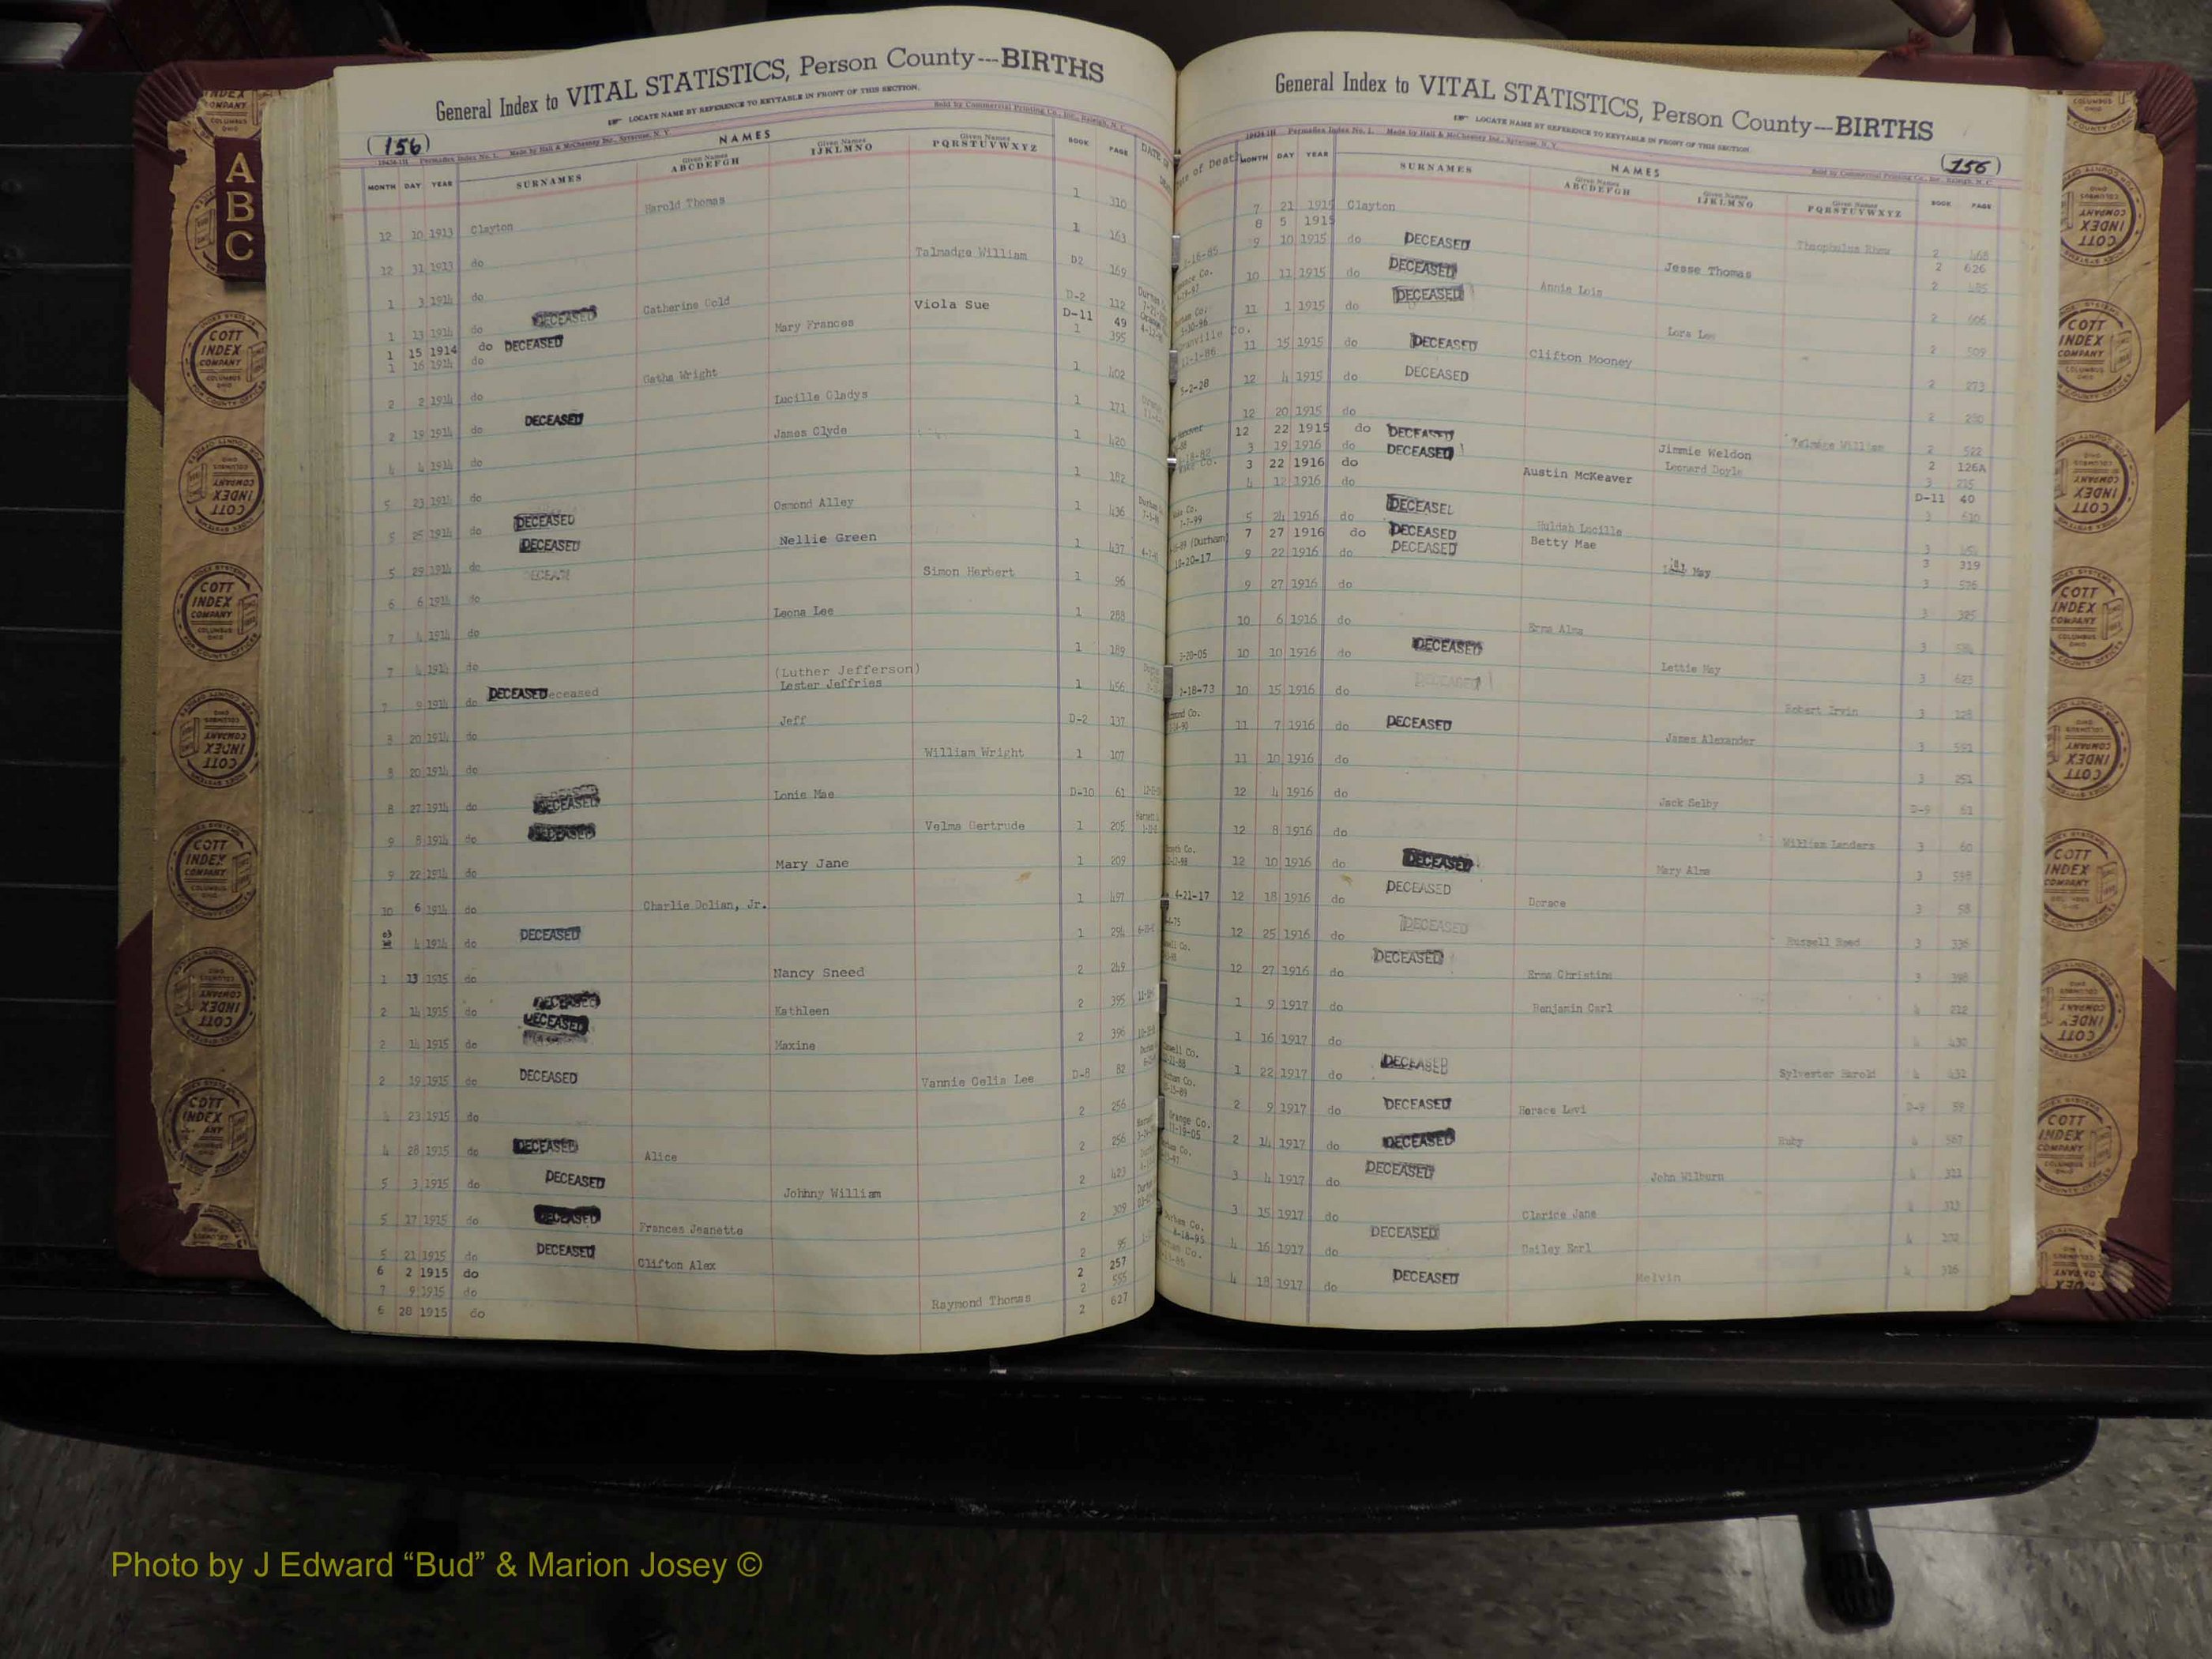 General Index to VITAL STATISTICS, Person County---BIRTHS
LOCATE NAME BY REFERENCE TO KEYTABLE IN FRONT OF THIS SECTION.
156
Made by Hall & McChesney Inc., Syracuse, N. Y.
Sold by Commercial Printing Co., Inc., Raleigh, N. C.
NAMES
MONTH DAY YEAR SURNAMES Given Names ABCDEFGH Given Names IJKLMNO Given Names PQRSTUVWXYZ BOOK PAGE
12 10 1913 Clayton Harold Thomas 1 310
12 31 1913 do 1 163
1 3 1914 do Talmadge William D2 169
1 13 1914 do DECEASED Catharine Gold D-2 112
1 15 1914 do DECEASED Viola Sue D-11 49
1 16 1914 do Mary Frances 1 395
2 2 1914 do Gatha Wright 1 402
2 19 1914 do DECEASED Lucille Gladys 1 171
4 4 1914 do James Clyde 1 420
5 23 1914 do 1 182
5 25 1914 do DECEASED Osmond Alley 1 436
5 29 1914 do DECEASED Nellie Green 1 437
6 6 1914 do Simon Herbert 1 96
7 4 1914 do Leona Lee 1 288
7 4 1914 do 1 189
7 9 1914 do DECEASED deceased (Luther Jefferson) Lester Jeffries 1 456
8 20 1914 do Jeff D-2 137
8 20 1914 do William Wright 1 107
8 27 1914 do DECEASED Lonie Mae D-10 61
9 8 1914 do DECEASED Velma Gertrude 1 205
9 22 1914 do Mary Jane 1 209
10 6 1914 do Charlie Dolian, Jr. 1 497
4 1914 do DECEASED 1 294
1 13 1915 do Nancy Sneed 2 249
2 14 1915 do DECEASED Kathleen 2 395
2 14 1915 do DECEASED Maxine 2 396
2 19 1915 do DECEASED Vannie Celia Lee D-8 82
4 23 1915 do 2 256
4 28 1915 do DECEASED Alice 2 256
5 3 1915 do DECEASED Johnny William 2 423
5 17 1915 do DECEASED Frances Jeanette 2 309
5 21 1915 do DECEASED Clifton Alex 2 95
6 2 1915 do 2 257
7 9 1915 do 2 555
6 28 1915 do Raymond Thomas 2 627
General Index to VITAL STATISTICS, Person County---BIRTHS
LOCATE NAME BY REFERENCE TO KEYTABLE IN FRONT OF THIS SECTION.
156
Made by Hall & McChesney Inc., Syracuse, N. Y.
Sold by Commercial Printing Co., Inc., Raleigh, N. C.
NAMES
MONTH DAY YEAR SURNAMES Given Names ABCDEFGH Given Names IJKLMNO Given Names PQRSTUVWXYZ BOOK PAGE
7 21 1915 Clayton
8 5 1915 Theophulus Rhew 2 468
9 10 1915 do DECEASED Jesse Thomas 2 626
10 11 1915 do DECEASED Annie Lois 2
11 1 1915 do DECEASED Lora Lee 2 606
11 15 1915 do DECEASED Clifton Mooney 2 509
12 4 1915 do DECEASED 2 273
12 20 1915 do Talmage William 2
12 22 1915 do DECEASED Jimmie Weldon 2 126A
3 19 1916 do DECEASED Leonard Doyle 3 215
3 22 1916 do Austin McKeaver D-11 40
4 12 1916 do 3 610
5 24 1916 do DECEASED Huldah Lucille 3
7 27 1916 do DECEASED Betty Mae 3 319
9 22 1916 do DECEASED May 3
9 27 1916 do 3 325
10 6 1916 do Erma Alma 3
10 10 1916 do DECEASED Lettie May 3 623
10 15 1916 do DECEASED Robert Irvin 3
11 7 1916 do DECEASED James Alexander 3 591
11 10 1916 do 3 251
12 4 1916 do Jack Selby D-9 61
12 8 1916 do William Landers 3 60
12 10 1916 do DECEASED Mary Alma 3 598
12 18 1916 do DECEASED Dorsce 3 58
12 25 1916 do DECEASED Russell Reed 3 336
12 27 1916 do DECEASED Erma Christine 3 398
1 9 1917 do Benjamin Carl 4 212
1 16 1917 do 4 430
1 22 1917 do DECEASED Sylvester Harold 4 432
2 9 1917 do DECEASED Horace Levi D-9 59
2 14 1917 do DECEASED Ruby 4 567
3 4 1917 do DECEASED John Wilburn 4 323
3 15 1917 do Clarice Jane 4
4 16 1917 do DECEASED Dailey Earl 4
4 18 1917 do DECEASED Melvin 4 316
A
B
C
COTT INDEX COMPANY
COLUMBUS OHIO
Photo by J Edward “Bud” & Marion Josey ©